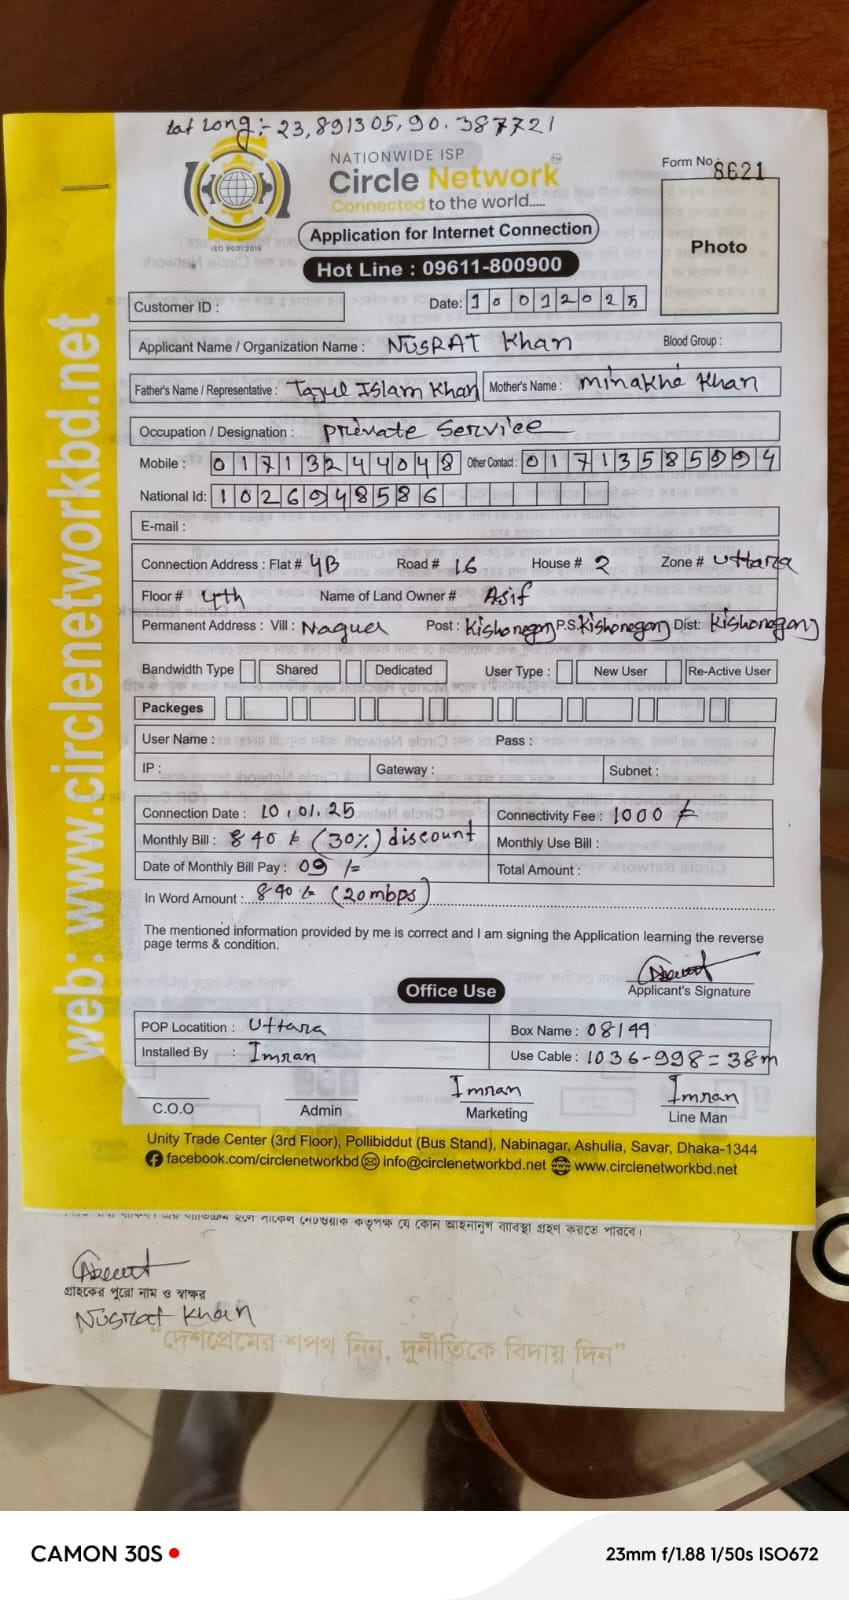 Lat Long:- 23,891305,90.387721
NATIONWIDE ISP
Circle Network
Connected to the world.....
ISO 9001:2015
Form No : 8621
Photo
Application for Internet Connection
Hot Line : 09611-800900
Customer ID :
Date: 10012025
Applicant Name / Organization Name : NUSRAT Khan Blood Group :
Father's Name / Representative : Tajul Islam Khan Mother's Name : Minakhe Khan
Occupation / Designation : Private Service
Mobile : 01713244048 Other Contact : 01713585994
National Id: 1026948586
E-mail :
Connection Address : Flat # 4B Road # 16 House # 2 Zone # Uttara
Floor # 4th Name of Land Owner # Asif
Permanent Address : Vill : Nagua Post : Kishoregonj P.S. Kishoregonj Dist: Kishoregonj
Bandwidth Type Shared Dedicated User Type : New User Re-Active User
Packeges
User Name : Pass :
IP : Gateway : Subnet :
Connection Date : 10.01.25 Connectivity Fee : 1000 ৳
Monthly Bill : 840 ৳ (30%) discount Monthly Use Bill :
Date of Monthly Bill Pay : 09 /= Total Amount :
In Word Amount : 840 ৳ (20mbps)
The mentioned information provided by me is correct and I am signing the Application learning the reverse
page terms & condition.
Applicant's Signature
Office Use
POP Locatition : Uttara Box Name : 08149
Installed By : Imran Use Cable : 1036-998=38m
Imran Imran
C.O.O Admin Marketing Line Man
Unity Trade Center (3rd Floor), Pollibiddut (Bus Stand), Nabinagar, Ashulia, Savar, Dhaka-1344
facebook.com/circlenetworkbd info@circlenetworkbd.net www.circlenetworkbd.net
web: www.circlenetworkbd.net
নেটওয়ার্ক কর্তৃপক্ষ যে কোন আইনানুগ ব্যাবস্থা গ্রহণ করতে পারবে।
গ্রাহকের পুরো নাম ও স্বাক্ষর
Nusrat Khan
"দেশপ্রেমের শপথ নিন, দুর্নীতিকে বিদায় দিন"
CAMON 30S
23mm f/1.88 1/50s ISO672